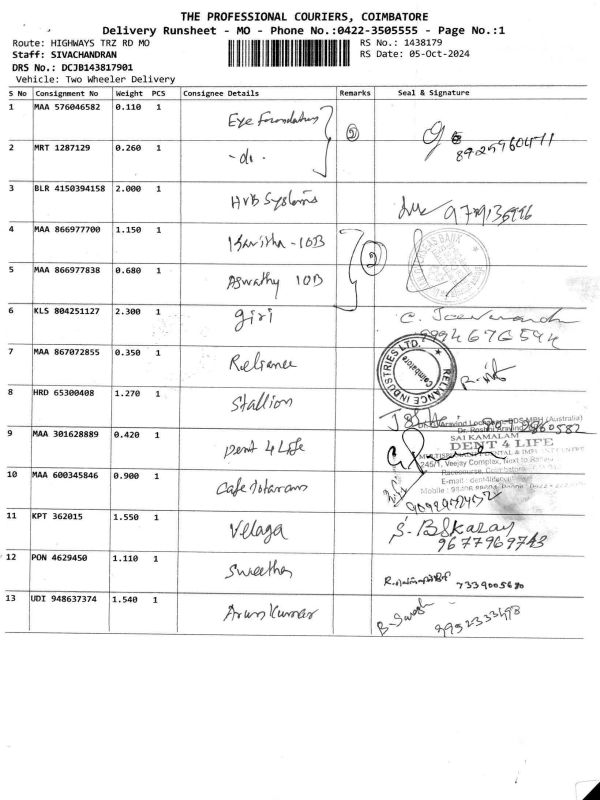 THE PROFESSIONAL COURIERS, COIMBATORE
Delivery Runsheet - MO - Phone No.:0422-3505555 - Page No.:1
Route: HIGHWAYS TRZ RD MO RS No.: 1438179
Staff: SIVACHANDRAN RS Date: 05-Oct-2024
DRS No.: DCJB143817901
Vehicle: Two Wheeler Delivery
S No Consignment No Weight PCS Consignee Details Remarks Seal & Signature
1 MAA 576046582 0.110 1 Eye Foundation
2 MRT 1287129 0.260 1 -do.
3 BLR 4150394158 2.000 1 HVB Systems
4 MAA 866977700 1.150 1 Kavitha - IOB
5 MAA 866977838 0.680 1 Aswathy IOB
6 KLS 804251127 2.300 1 giri
9994676594
7 MAA 867072855 0.350 1 Reliance
RELIANCE INDUSTRIES LTD.
Coimbatore
8 HRD 65300408 1.270 1 Stallion
9 MAA 301628889 0.420 1 Dent 4 Life
SAI KAMALAM
DENT 4 LIFE
245/1, Veejay Complex, Next to
Racecourse, Coimbatore
10 MAA 600345846 0.900 1 Cafe Totaram
11 KPT 362015 1.550 1 Velaga
9677969743
12 PON 4629450 1.110 1 Swetha
7339005680
13 UDI 948637374 1.540 1 Arun Kumar
9952333498